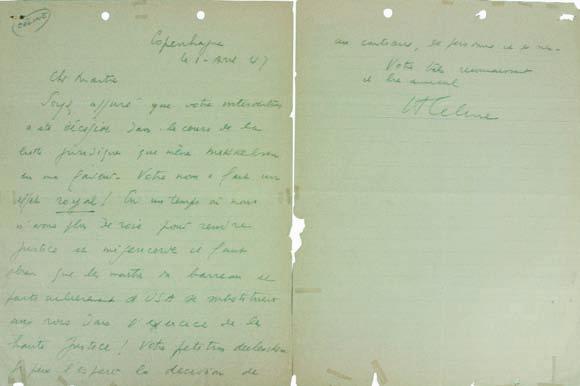 CÉLINE
Copenhague
le 1 - Avril 47
Cher Maître
Soyez assuré que votre intervention
a été décisive dans le cours de la
lutte juridique que mène Mikkelsen
en ma faveur. Votre nom a fait un
effet royal! En un temps où nous
n'avons plus de rois pour rendre
justice et miséricorde il faut
bien que les maîtres du barreau se
aux rois dans l'exercice de la
haute justice! Votre
la décision de
au contraire, et personne
Votre très reconnaissant
et bien amical
LF Céline